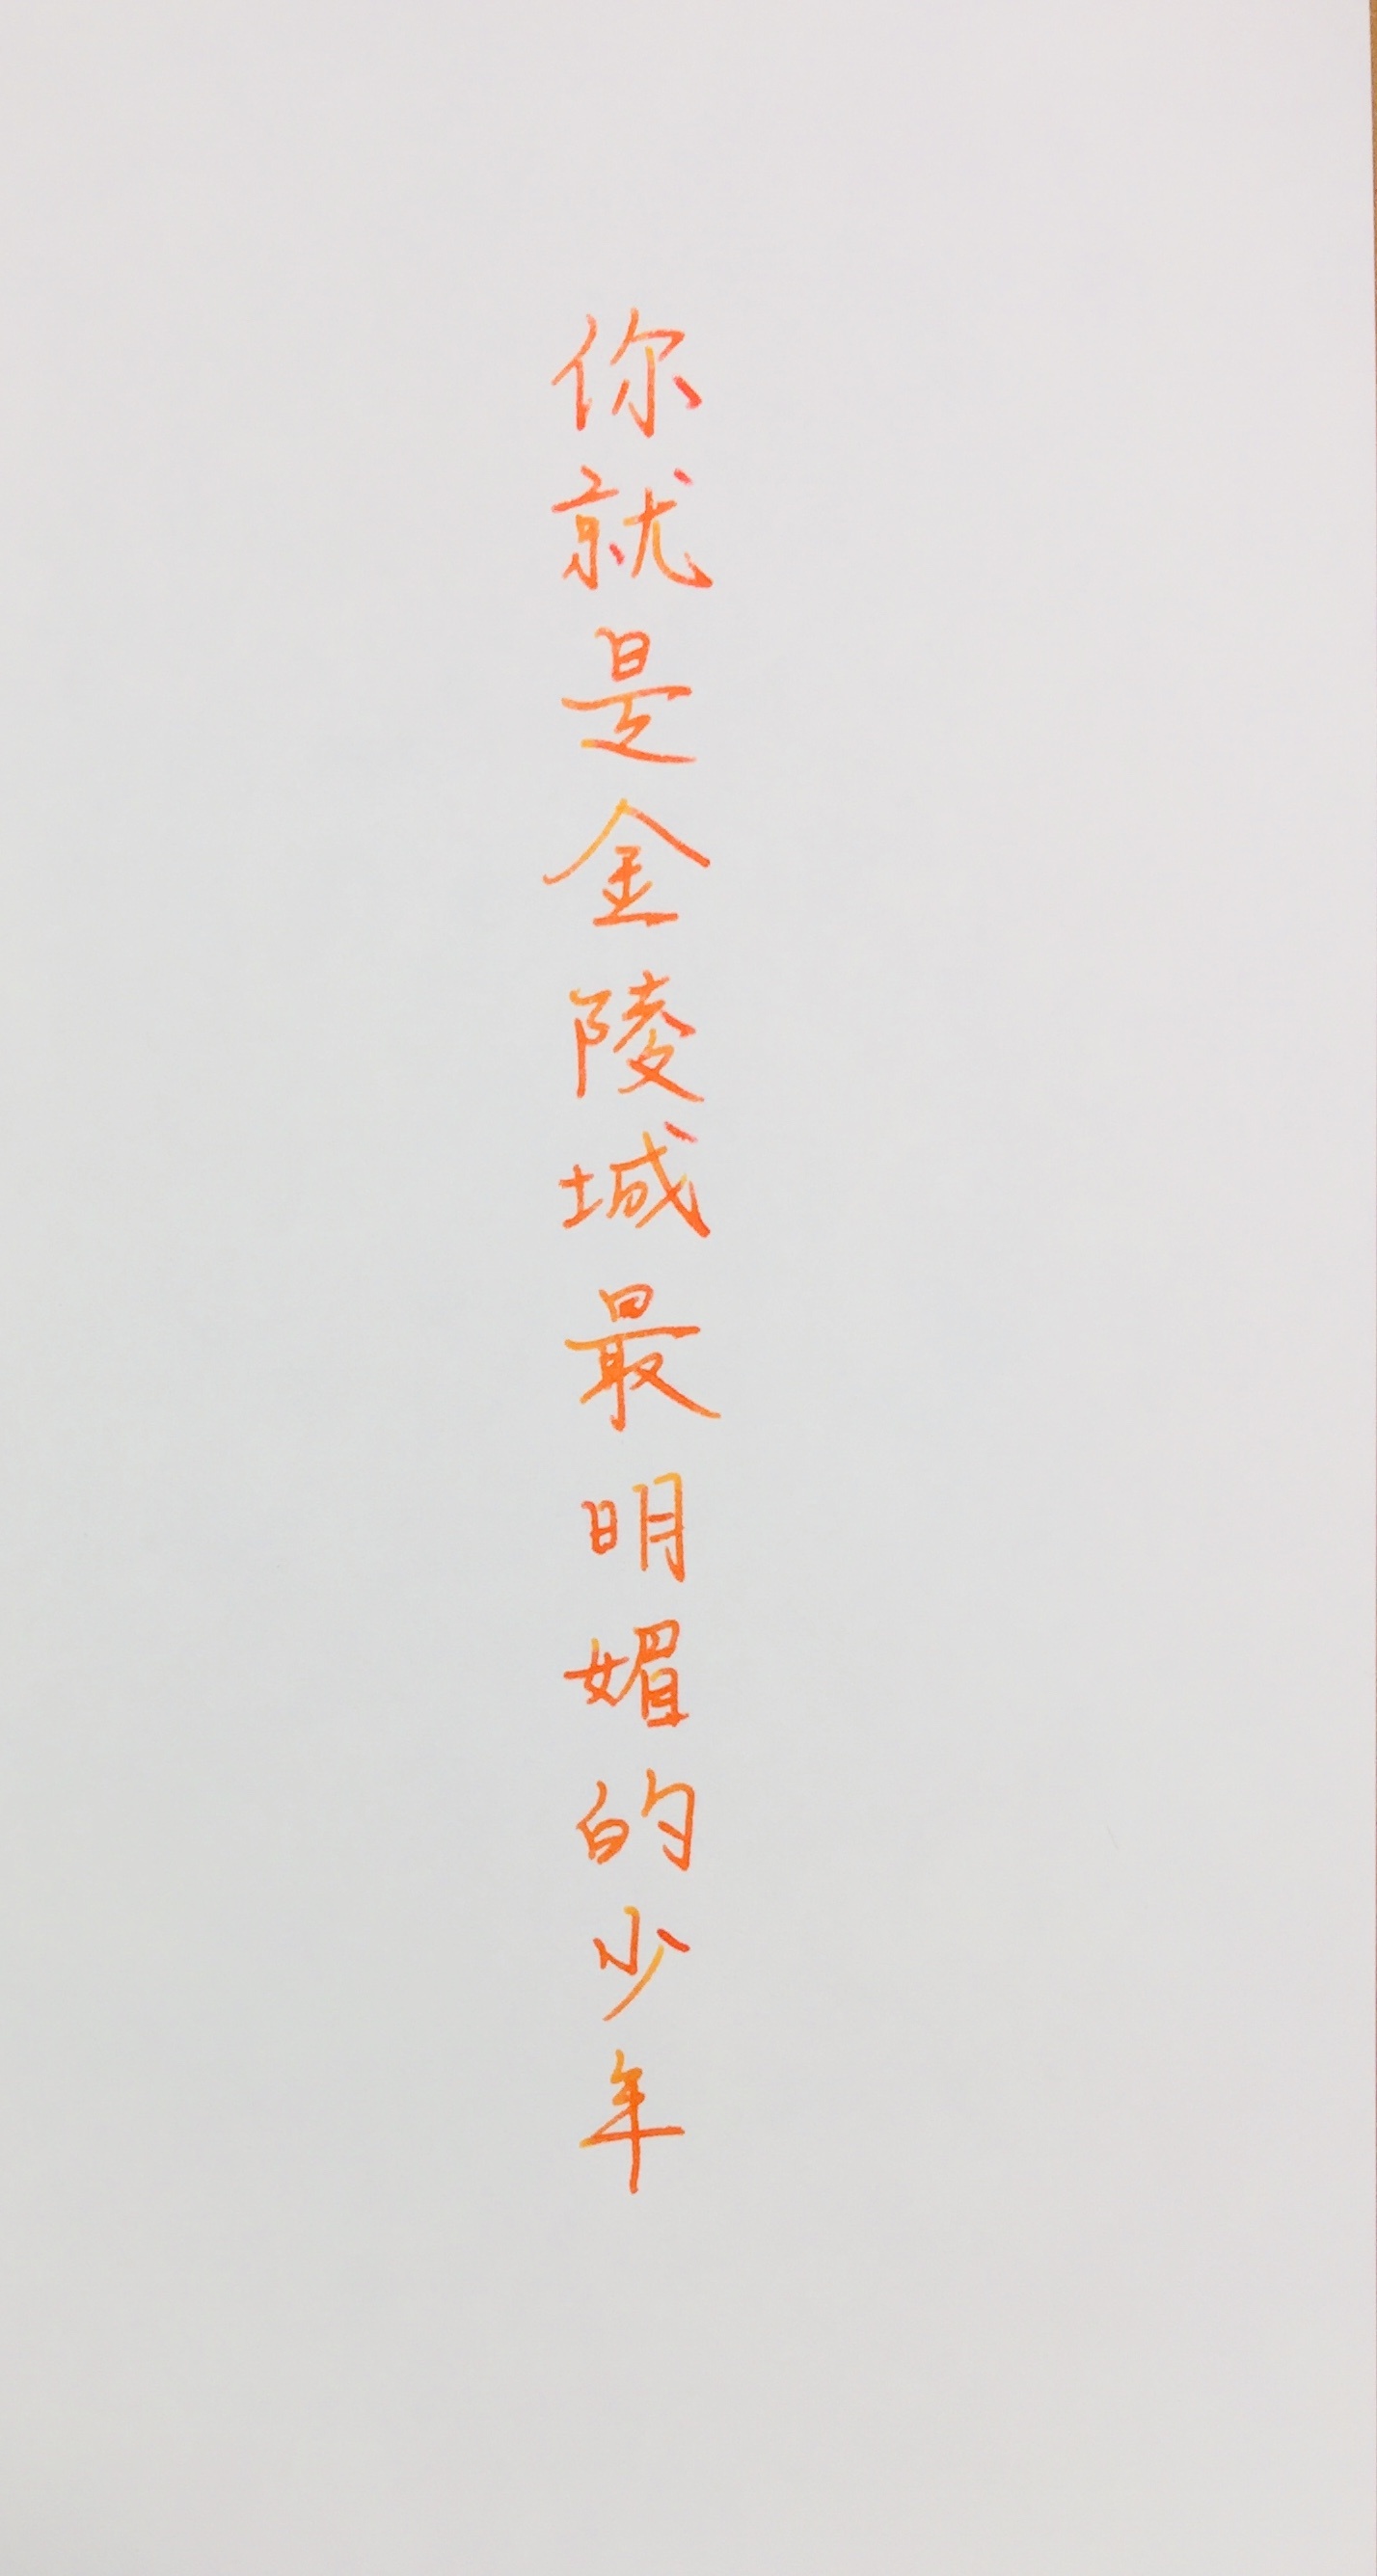 你就是金陵城最明媚的少年